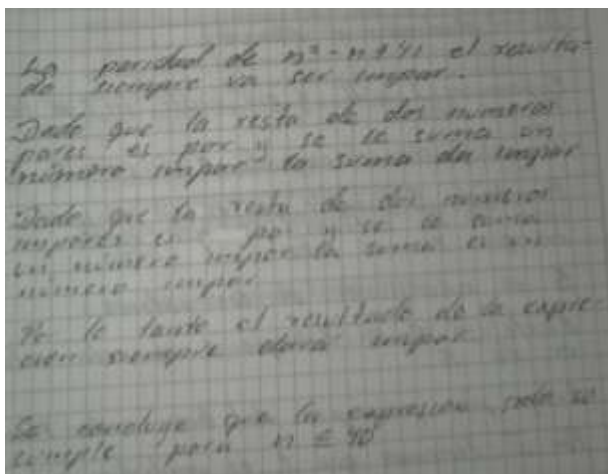 La paridad de n² - n + 41 el resulta-
do siempre va ser impar.
Dado que la resta de dos números
pares es par y se le suma un
número impar la suma da impar
Dado que la resta de dos números
impares es par y se le suma
un número impar la suma es un
número impar
Por lo tanto el resultado de la expre-
sión siempre dará impar
Se concluye que la expresión solo se
cumple para n ≤ 40